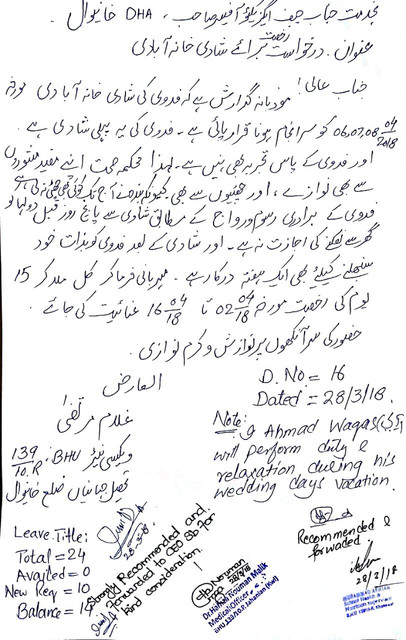 بخدمت جناب چیف ایگزیکٹو آفیسر صاحب ، DHA خانیوال .
عنوان . درخواست رخصت برائے شادی خانہ آبادی
جناب عالی !
مودبانہ گذارش ہے کہ فدوی کی شادی خانہ آبادی مورخہ
06,07,08 04/2018 کو سرانجام ہونا قرار پائی ہے ۔ فدوی کی یہ پہلی شادی ہے ۔
اور فدوی کے پاس تجربہ بھی نہیں ہے ۔ لہذا محکمہ صحت اپنے مفید مشوروں
سے بھی نوازے ، اور چھٹیوں سے بھی ۔ کیونکہ بندہ نے آج تک کوئی چھٹی نہ کی ہے
فدوی کے برادری رسوم و رواج کے مطابق شادی سے پانچ روز قبل دولہا کو
گھر سے نکلنے کی اجازت نہ ہے ۔ اور شادی کے بعد فدوی کو بذات خود
سنبھلنے کیلئے بھی ایک ہفتہ درکار ہے ۔ مہربانی فرما کر کل ملا کر 15
یوم کی رخصت مورخہ 02 04/18 تا 16 04/18 عنائیت کی جائے .
حضور کی سر آنکھوں پر نوازش و کرم نوازی .
العارض
غلام مرتضیٰ
ویکسینیٹر BHU ، 139/10.R
تحصیل جہانیاں ضلع خانیوال
D. No = 16
Dated = 28/3/18.
Note: I Ahmad Waqas
will perform duty &
relaxation during his
wedding days vacation.
Leave Title:
Total = 24
Availed = 0
New Req = 10
Balance = 15
28-3-18
Strongly Recommended and
forwarded to CEO Sb for
kind consideration.
Nouman
28/3/18
Dr. Hafiz Nouman Malik
Medical Officer
Recommended &
forwaded
28/3/18